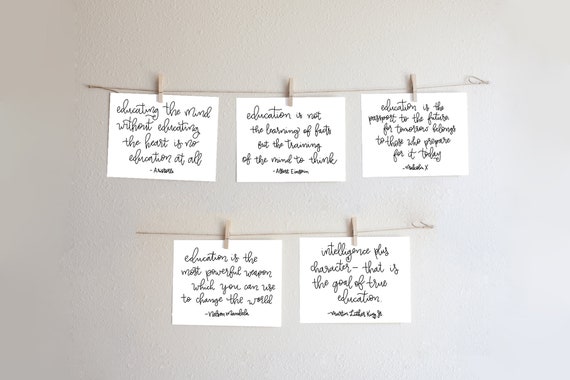 educating the mind
without educating
the heart is no
education at all
- Aristotle
education is not
the learning of facts
but the training
of the mind to think
- Albert Einstein
education is the
passport to the future
for tomorrow belongs
to those who prepare
for it today
- Malcolm X
education is the
most powerful weapon
which you can use
to change the world
- Nelson Mandela
intelligence plus
character- that is
the goal of true
education.
- Martin Luther King Jr.